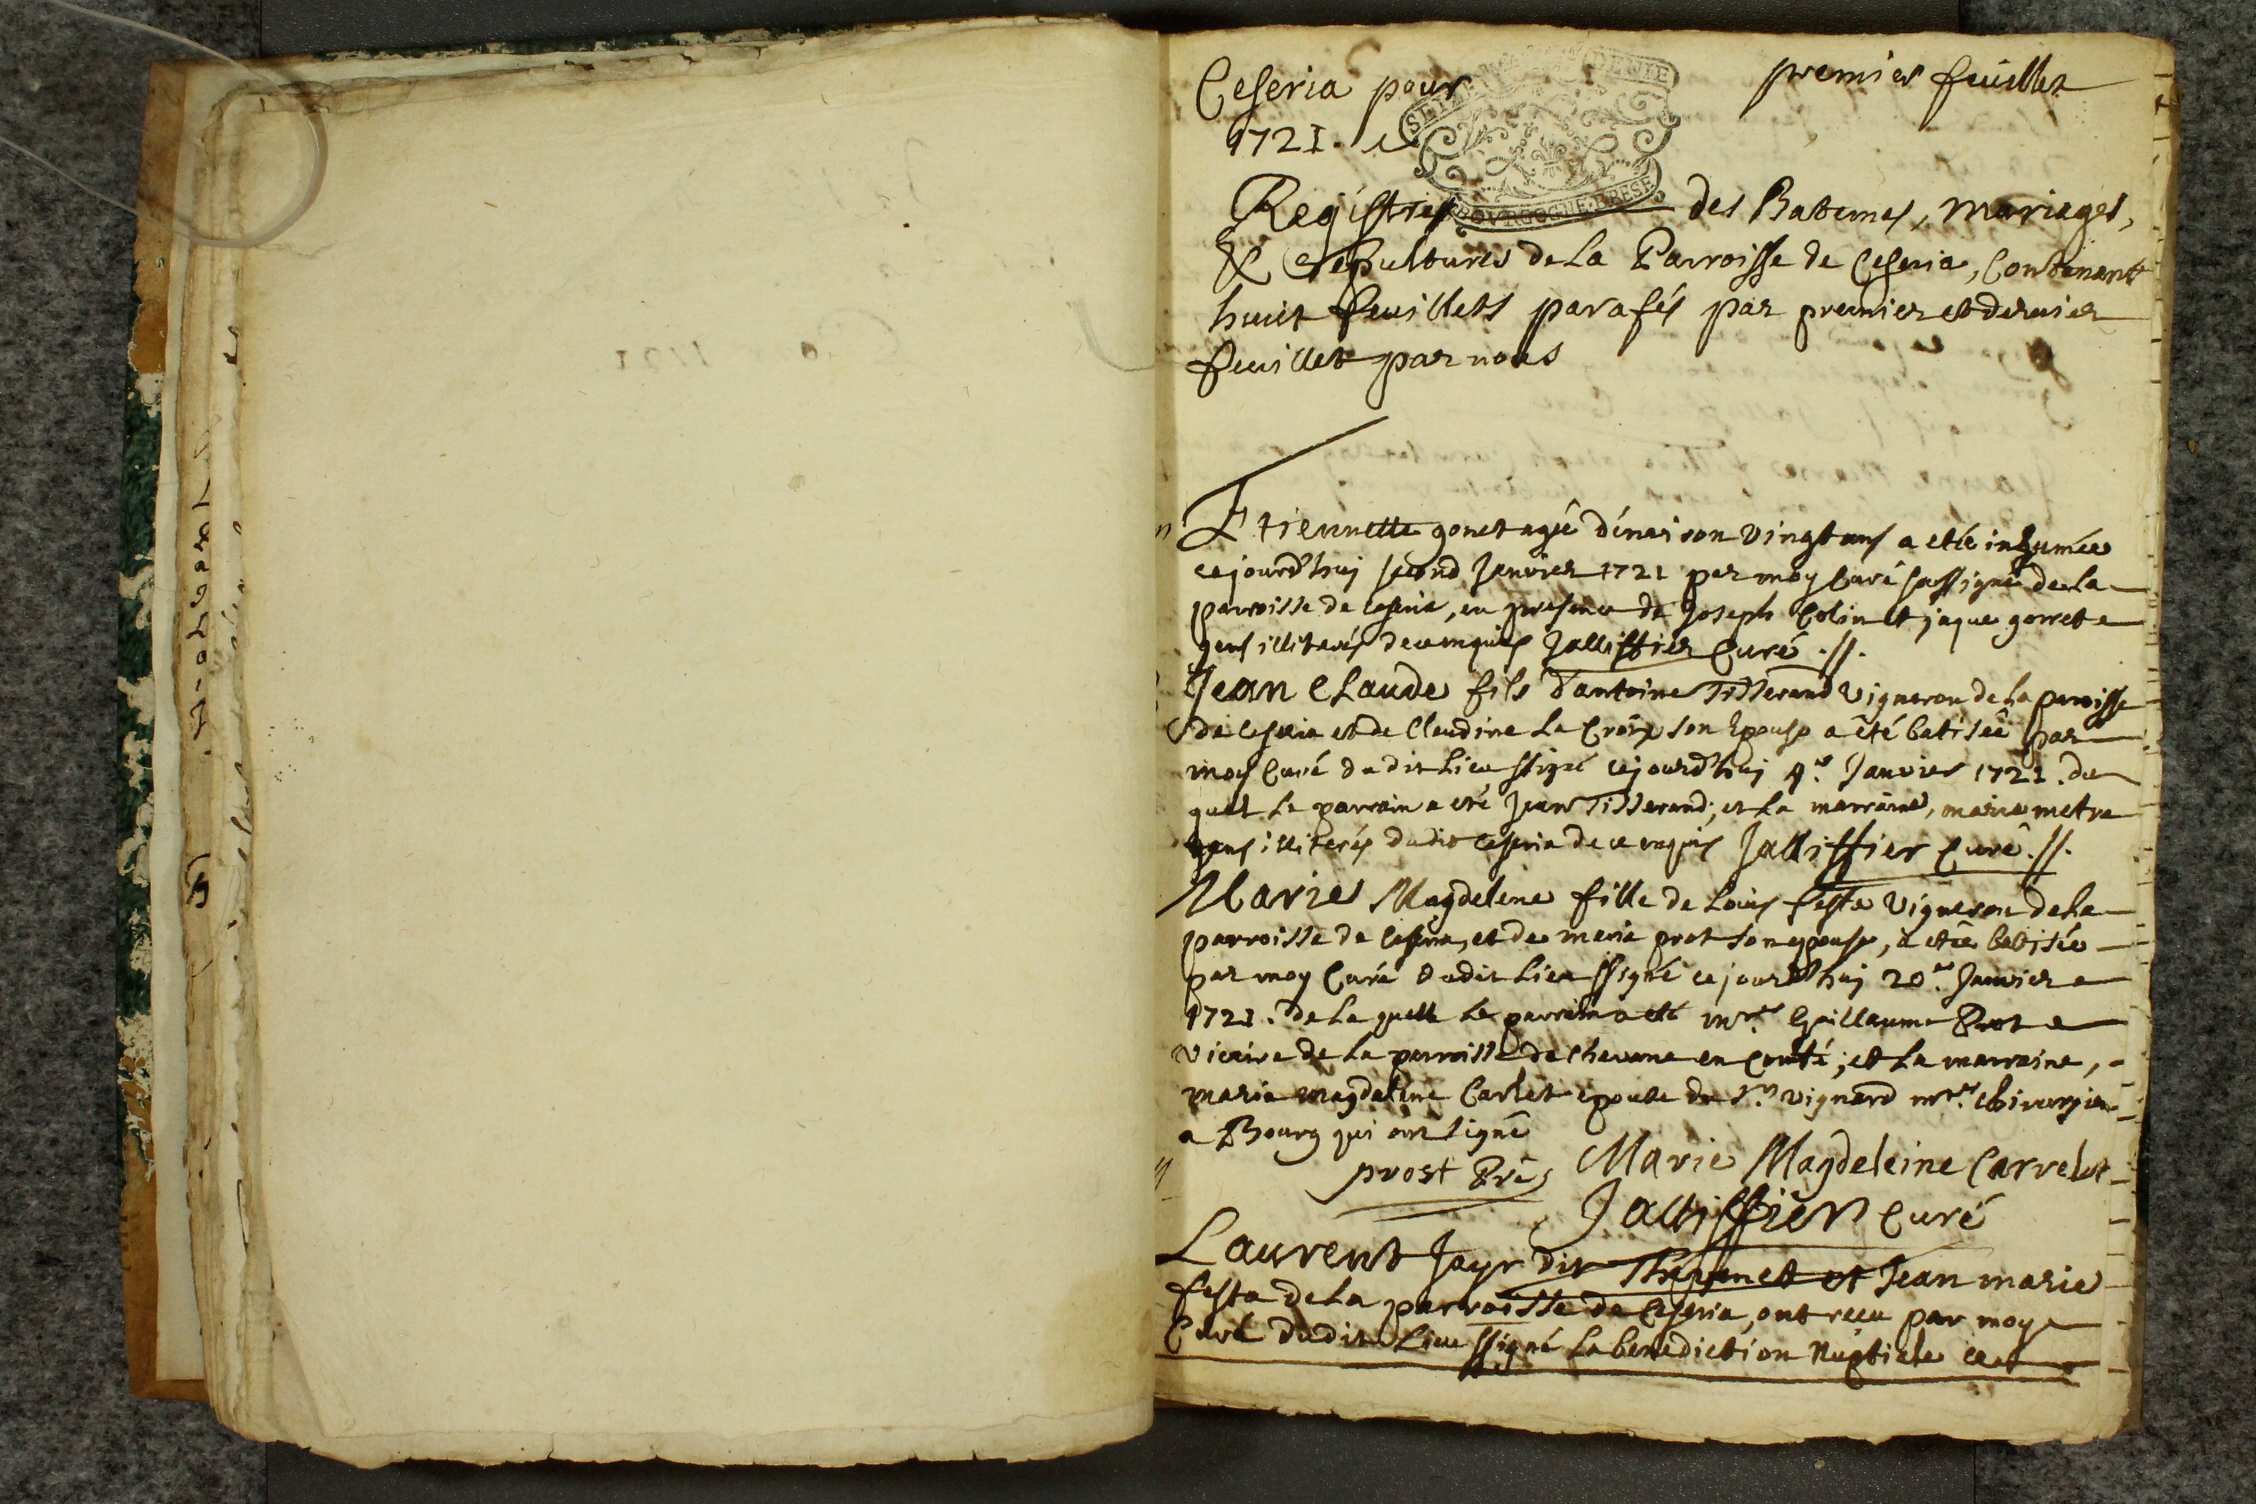 Ceseria pour
premier feuillet
1721.
BOVRGOGNE.BRESE
Registres des Batemes, mariages,
& Sepultures de La Parroisse de Ceseria, Contenant
huict feuillets parafés par premier et dernier
feuillet par nous
Etiennette gonet agée d'énvison vingt ans a etée inhumée
cejourd'huy second Janvier 1721 par moy Curé sussigné de La
parroisse de Ceseria, en presence de Joseph Colin et jaque gorret
gens illiterés de ce enquis Jallisffier Curé .//.
Jean Claude fils d'antoine Tisserand Vigneron de La paroisse
de Ceseria et de Claudine La Croix son Epouse a été batiseé par
moy Curé dudit Lieu ssigné cejourd'huy 4.e Janvier 1721. du
quel Le parrain a eté Jean Tisserand; et La marraine, marie metra
gens illiterés dudit Ceseria de ce enquis Jallisffier Curé .//.
Marie Magdelene fille de Louis festa Vigneron de La
parroisse de Ceseria, et de marie prot son epouse, a etée batisée
par moy Curé dudit Lieu ssigné cejourd'huy 20.e Janvier
1721. de La quelle Le parrain a eté mre. Guillaume Prot
vicaire de La parroisse de Chevane en Comté; et La marraine,
marie magdelene Carlet epouse du Sr. vignard mre. Chirurgien
a Bourg qui ont signé
prost Prê
Marie Magdeleine Carrelet
Jallisffier Curé
Laurent Jayr dit Thevenet et Jean marie
festa de La parroisse de Ceseria, ont recu par moy
Curé dudit Lieu ssigné La benediction Nuptiale